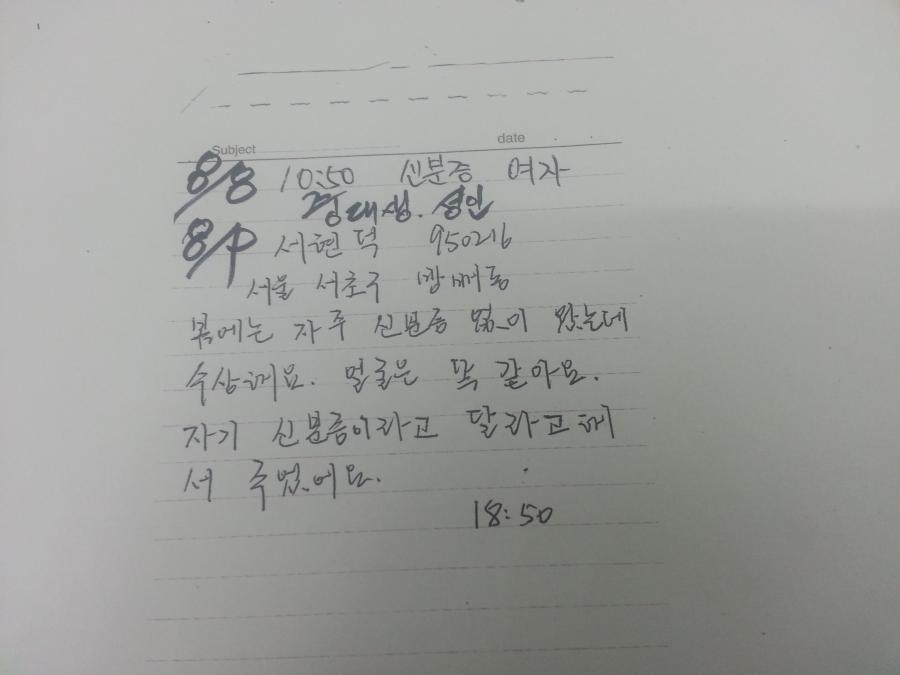 Subject date
8/8 10:50 신분증 여자
경대생. 성인
8/9 서현덕 950216
서울 서초구 방배동
복에는 자주 신분증 없이 왔는데
수상해요. 얼굴은 똑 같아요.
자기 신분증이라고 달라고해
서 주었어요.
18:50